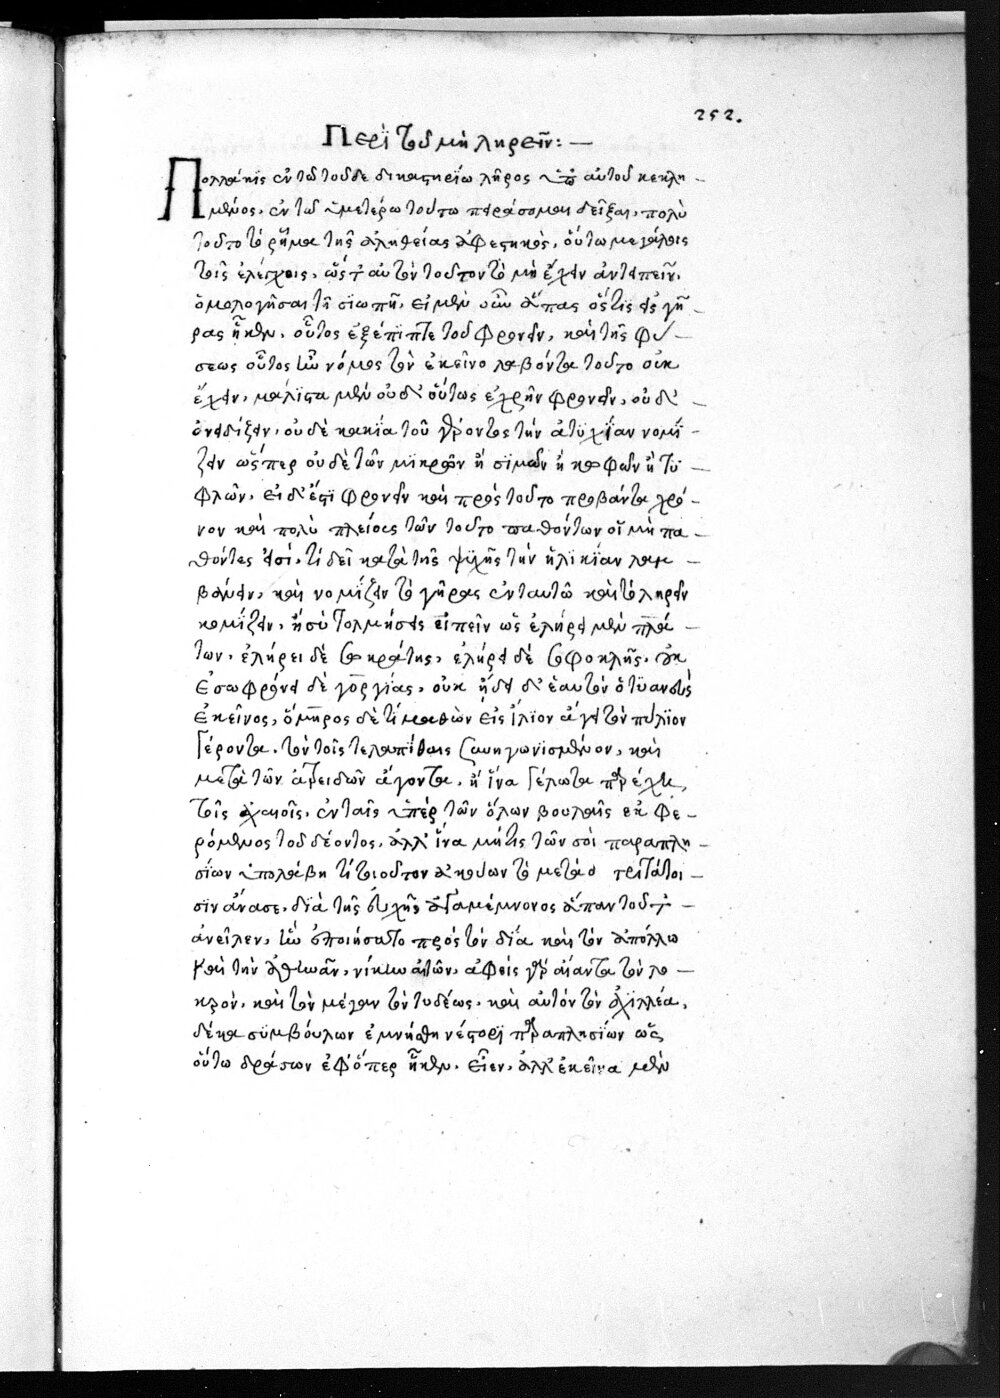 252.
Περὶ τοῦ μὴ ληρεῖν: —
Πολλάκις ἐν τῶ τοῦδε δικαστηρίω λῆρος ὑπ' αὐτοῦ κεκλη-
μένος, ἐν τῶ ὑμετέρω τούτω πειράσομαι δεῖξαι, πολὺ
τοῦτο τὸ ῥῆμα τῆς ἀληθείας ἀφεστηκὸς, οὕτω μεγάλοις
τοῖς ἐλέγχοις, ὥστ' αὐτὸν τοῦτον τῶ μὴ ἔχειν ἀντειπεῖν,
ὁμολογῆσαι τῆ σιωπῆ. εἰ μὲν οὖν ἅπας ὅστις εἰς γῆ-
ρας ἧκεν, οὗτος ἐξέπιπτε τοῦ φρονεῖν, καὶ τῆς φύ-
σεως οὗτος ἦν νόμος τὸν ἐκεῖνο λαβόντα τοῦτο οὐκ
ἔχειν, μάλιστα μὲν οὐδ' οὕτως ἐχρῆν φρονεῖν, οὐδ'
ὀνειδίζειν, οὐδὲ κακία τοῦ γέροντος τὴν ἀτυχίαν νομί-
ζειν ὥσπερ οὐδὲ τῶν μικρῶν ἢ σιμῶν ἢ κωφῶν ἢ τυ-
φλῶν, εἰ δ' ἔστι φρονεῖν καὶ πρὸς τοῦτο προβάντα χρό-
νου καὶ πολὺ πλείους τῶν τοῦτο παθόντων οἱ μὴ πα-
θόντες εἰσί, τί δεῖ κατὰ τῆς ψυχῆς τὴν ἡλικίαν λαμ-
βάνειν, καὶ νομίζειν τὸ γῆρας ἐνταυτῶ καὶ τὸ ληρεῖν
κομίζειν, ἢ σὺ τολμήσεις εἰπεῖν ὡς ἐλήρει μὲν πλά-
των, ἐλήρει δὲ σωκράτης, ἐλήρει δὲ σοφοκλῆς, οὐκ
ἐσωφρόνει δὲ γοργίας, οὐκ ἤδει δ' ἑαυτὸν ὁ τυανεὺς
ἐκεῖνος, ὅμηρος δὲ τί μαθὼν εἰς ἴλιον ἄγει τὸν πύλιον
γέροντα, τὸν τοῖς λαπίθαις συνηγωνισμένον, καὶ
μετὰ τῶν ἀτρειδῶν ἄγοντα, ἢ ἵνα γέλωτα παρέχη
τοῖς ἀχαιοῖς, ἐν ταῖς ὑπὲρ τῶν ὅλων βουλαῖς ἐκφε-
ρόμενος τοῦ δέοντος, ἀλλ' ἵνα μή τις τῶν σοὶ παραπλη-
σίων ὑπολάβη τι τοιοῦτον ἀκούων τὸ μετὰ δ τριτάτοι-
σιν ἄνασσε, διὰ τῆς εὐχῆς ἀγαμέμνονος ἅπαν τοῦτ'
ἀνεῖλεν, ἣν ἐποιήσατο πρὸς τὸν δία καὶ τὸν ἀπόλλω
καὶ τὴν ἀθηνᾶν, νίκην αἰτῶν, ἀφεὶς γὰρ αἴαντα τὸν λο-
κρὸν, καὶ τὸν μέγαν τὸν τυδέως, καὶ αὐτὸν τὸν ἀχιλλέα,
δέκα συμβούλων ἐμνήσθη νέστορι παραπλησίων ὡς
οὕτω δράσων ἐφ' ὅπερ ἧκεν. εἶεν, ἀλλ' ἐκεῖνα μὲν